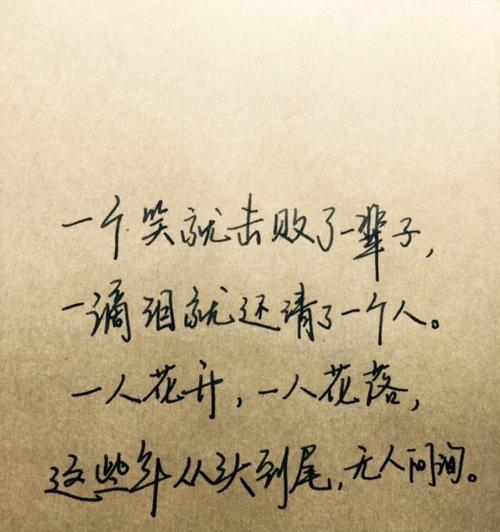 一个笑就击败了一辈子，
一滴泪就还清了一个人。
一人花开，一人花落，
这些年从头到尾，无人问询。